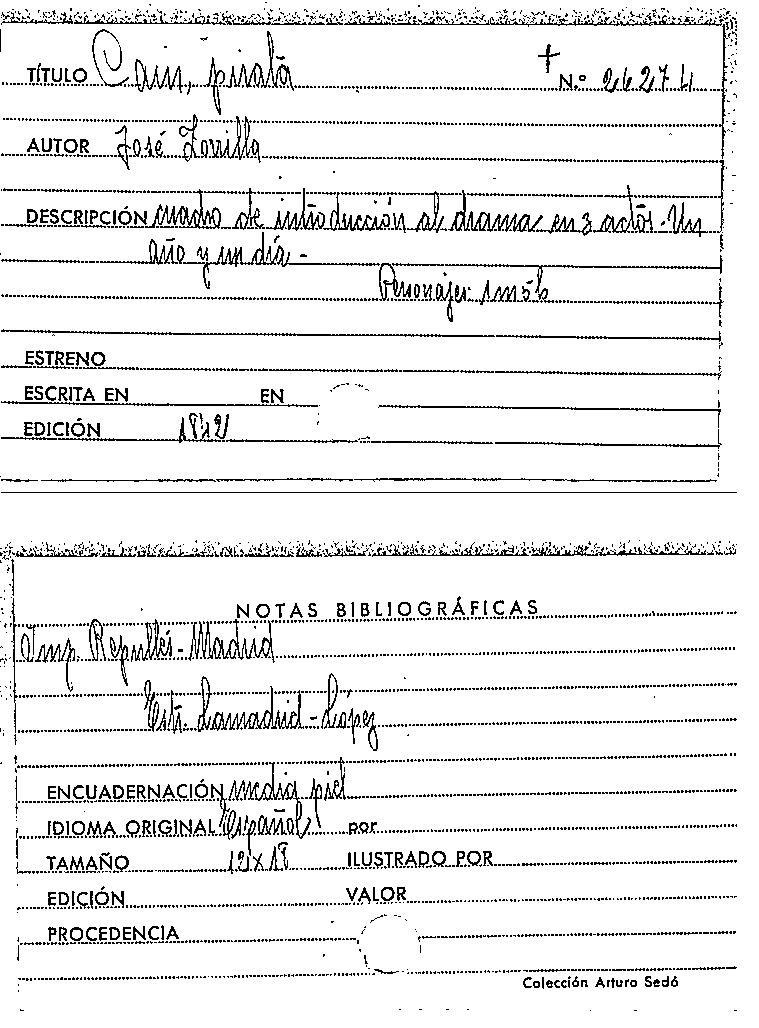 TÍTULO Cain, pirata N.º 26274
AUTOR José Zorrilla
DESCRIPCIÓN cuadro de introducción al drama en 3 actos. Un
año y un día -
Personajes: 1m5h
ESTRENO
ESCRITA EN EN
EDICIÓN 1842
NOTAS BIBLIOGRÁFICAS
Imp. Repullés - Madrid
Estr. Lamadrid - López
ENCUADERNACIÓN media piel
IDIOMA ORIGINAL Español por
TAMAÑO 12x18 ILUSTRADO POR
EDICIÓN VALOR
PROCEDENCIA
Colección Arturo Sedó